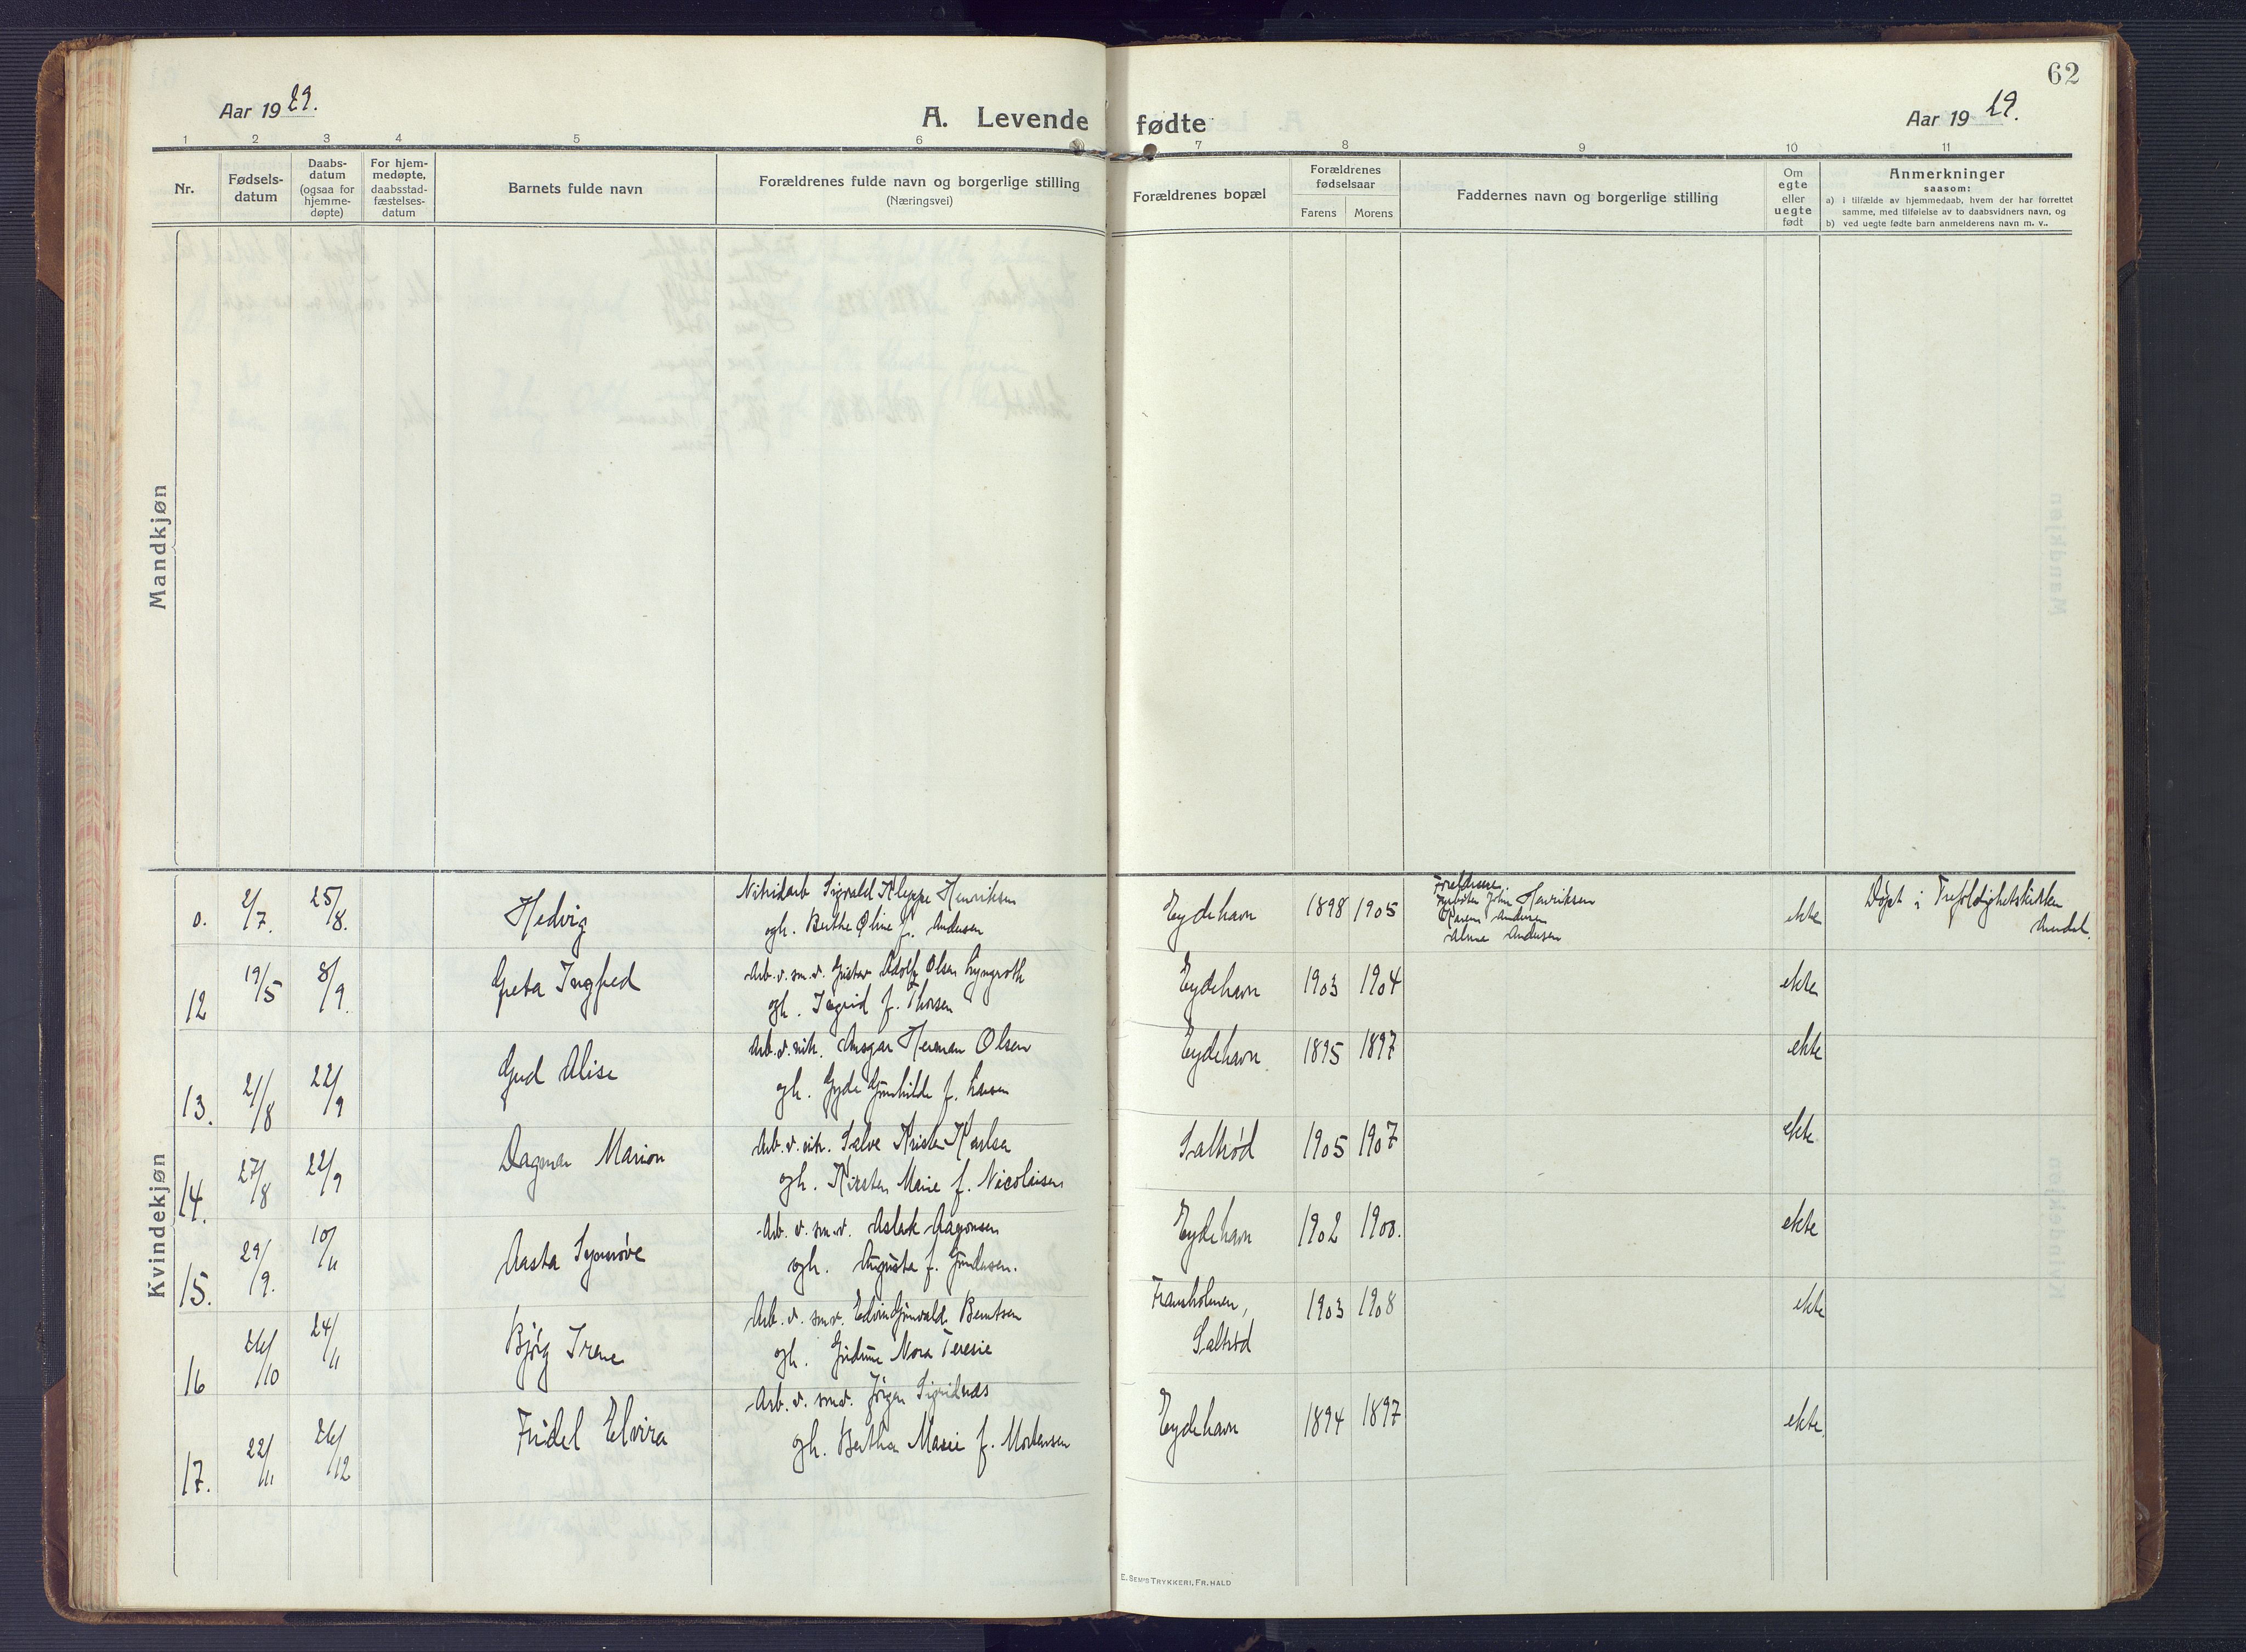 62
Aar 1929.
A. Levende fødte
Aar 1929.
1 2 3 4 5 6 7 8 9 10 11
Nr.
Fødsels-
datum
Daabs-
datum
(ogsaa for
hjemme-
døpte)
For hjem-
medøpte,
daabsstad-
fæstelses-
datum
Barnets fulde navn
Forældrenes fulde navn og borgerlige stilling
(Næringsvei)
Forældrenes bopæl
Forældrenes
fødselsaar
Farens Morens
Faddernes navn og borgerlige stilling
Om
egte
eller
uegte
født
Anmerkninger
saasom:
a) i tilfælde av hjemmedaab, hvem der har forrettet
samme, med tilføielse av to daabsvidners navn, og
b) ved uegte fødte barn anmelderens navn m. v..
Mandkjøn
Kvindekjøn
0. 2/7. 25/8. Hedvig
Nitridarb Sigvald Kleppe Henriksen
ogh. Berthe Oline f. Andersen
Eydehavn 1898 1905
Foreldrene
John Henriksen
Karen Andersen
Alma Andersen
ekte
Døpt i Trefoldighetskirken
Arendal.
12 19/5 8/9. Greta Ingfred
Arb. v. sm.v. Gustav Adolf Olsen Lyngroth
gh. Ingrid f. Thorsen
Eydehavn 1903 1904 ekte
13. 21/8 22/9 Gud Alise
Arb. v. nitr. Ansgar Herman Olsen
gh. Gyda Gunhilde f. Larsen
Eydehavn 1895 1897 ekte
14. 27/8 22/9 Dagmar Marion
Arb. v. nitr. Salve Krister Karlsen
gh. Kirsten Marie f. Nicolaisen
Saltrød 1905 1907 ekte
15. 29/9. 10/11 Aasta Synnøve
Arb. v. sm.v. Aslak Aagonsen
ogh. Augusta f. Gundersen.
Eydehavn 1902 1900. ekte
16 26/10 24/11 Bjørg Irene
Arb. v. sm.v. Edvin Gunvald Berntsen
gh. Gudrun Nora Teresie
Framholmen,
Saltrød
1903 1908 ekte
17. 22/11 26/12 Fridel Elvira
Arb. v. sm.v. Jørgen Sigridnes
gh. Bertha Marie f. Mortensen
Eydehavn 1894 1897 ekte.
E. SEM'S TRYKKERI, FR. HALD